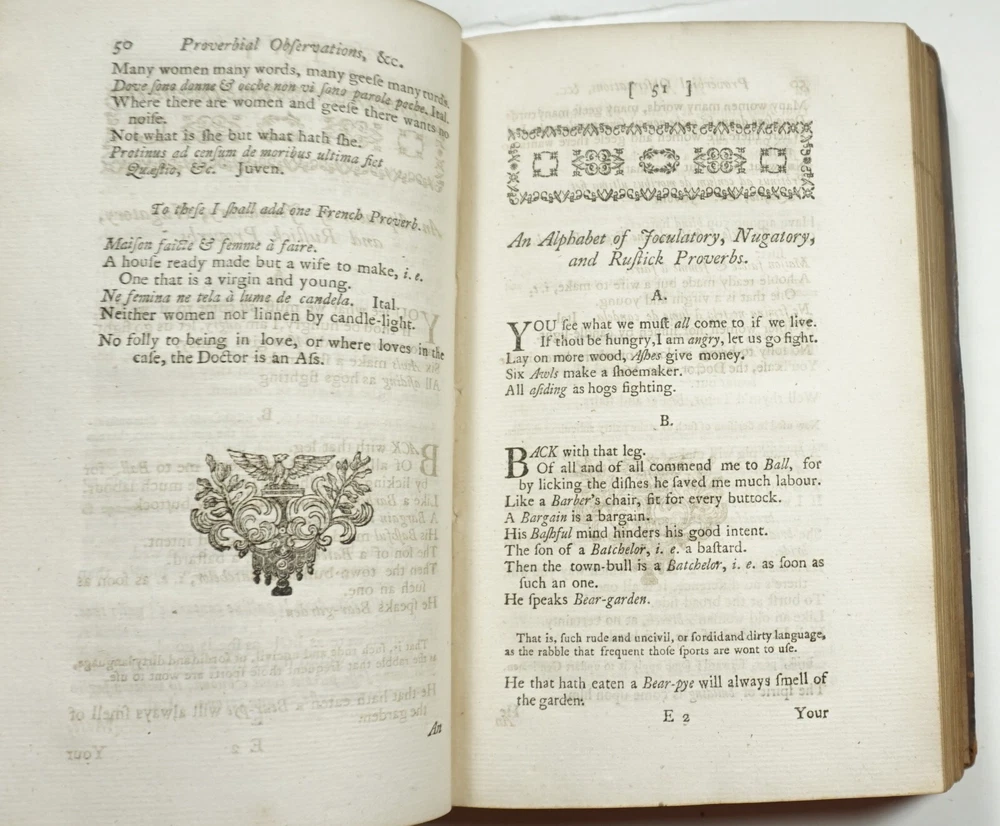 50 Proverbial Obſervations, &c.
Many women many words, many geeſe many turds.
Dove ſono donne & ocche non vi ſono parole poche. Ital.
Where there are women and geeſe there wants no
noiſe.
Not what is ſhe but what hath ſhe.
Protinus ad cenſum de moribus ultima fiet
Quæſtio, &c. Juven.
To theſe I ſhall add one French Proverb.
Maiſon faicte & femme à faire.
A houſe ready made but a wife to make, i. e.
One that is a virgin and young.
Ne femina ne tela à lume de candela. Ital.
Neither women nor linnen by candle-light.
No folly to being in love, or where loves in the
caſe, the Doctor is an Aſs.
An
[ 51 ]
An Alphabet of Joculatory, Nugatory,
and Ruſtick Proverbs.
A.
YOU ſee what we muſt all come to if we live.
If thou be hungry, I am angry, let us go fight.
Lay on more wood, Aſhes give money.
Six Awls make a ſhoemaker.
All aſiding as hogs fighting.
B.
BACK with that leg.
Of all and of all commend me to Ball, for
by licking the diſhes he ſaved me much labour.
Like a Barber's chair, fit for every buttock.
A Bargain is a bargain.
His Baſhful mind hinders his good intent.
The ſon of a Batchelor, i. e. a baſtard.
Then the town-bull is a Batchelor, i. e. as ſoon as
ſuch an one.
He ſpeaks Bear-garden.
That is, ſuch rude and uncivil, or ſordid and dirty language,
as the rabble that frequent thoſe ſports are wont to uſe.
He that hath eaten a Bear-pye will always ſmell of
the garden.
E 2 Your